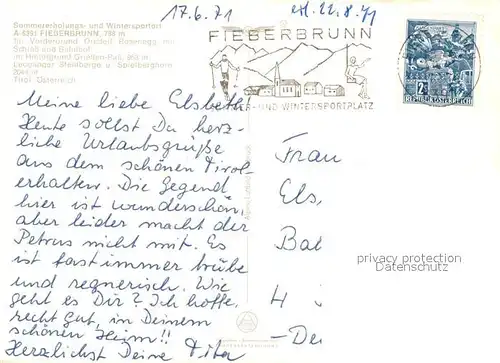 17.6.71
erh. 22.8.71
Sommererholungs- und Wintersportort
A-6391 FIEBERBRUNN, 788 m
Im Vordergrund Ortsteil Rosenegg, mit
Schloß und Bahnhof
im Hintergrund Grießen-Paß, 963 m
Leoganger Steinberge u. Spielberghorn
2044 m
Tirol Österreich
FIEBERBRUNN
- UND WINTERSPORTPLATZ
2S
REPUBLIK ÖSTERREICH
Meine liebe Elsbeth
Heute sollst Du herz-
liche Urlaubsgrüße
aus dem schönen Tirol
erhalten. Die Gegend
hier ist wunderschön,
aber leider macht der
Petrus nicht mit. Es
ist fast immer trübe
und regnerisch. Wie
geht es Dir? Ich hoffe,
recht gut, in Deinem
schönen Heim!!
Herzlichst Deine Rita
Frau
Els
Bal
4
-De
privacy protection
Datenschutz